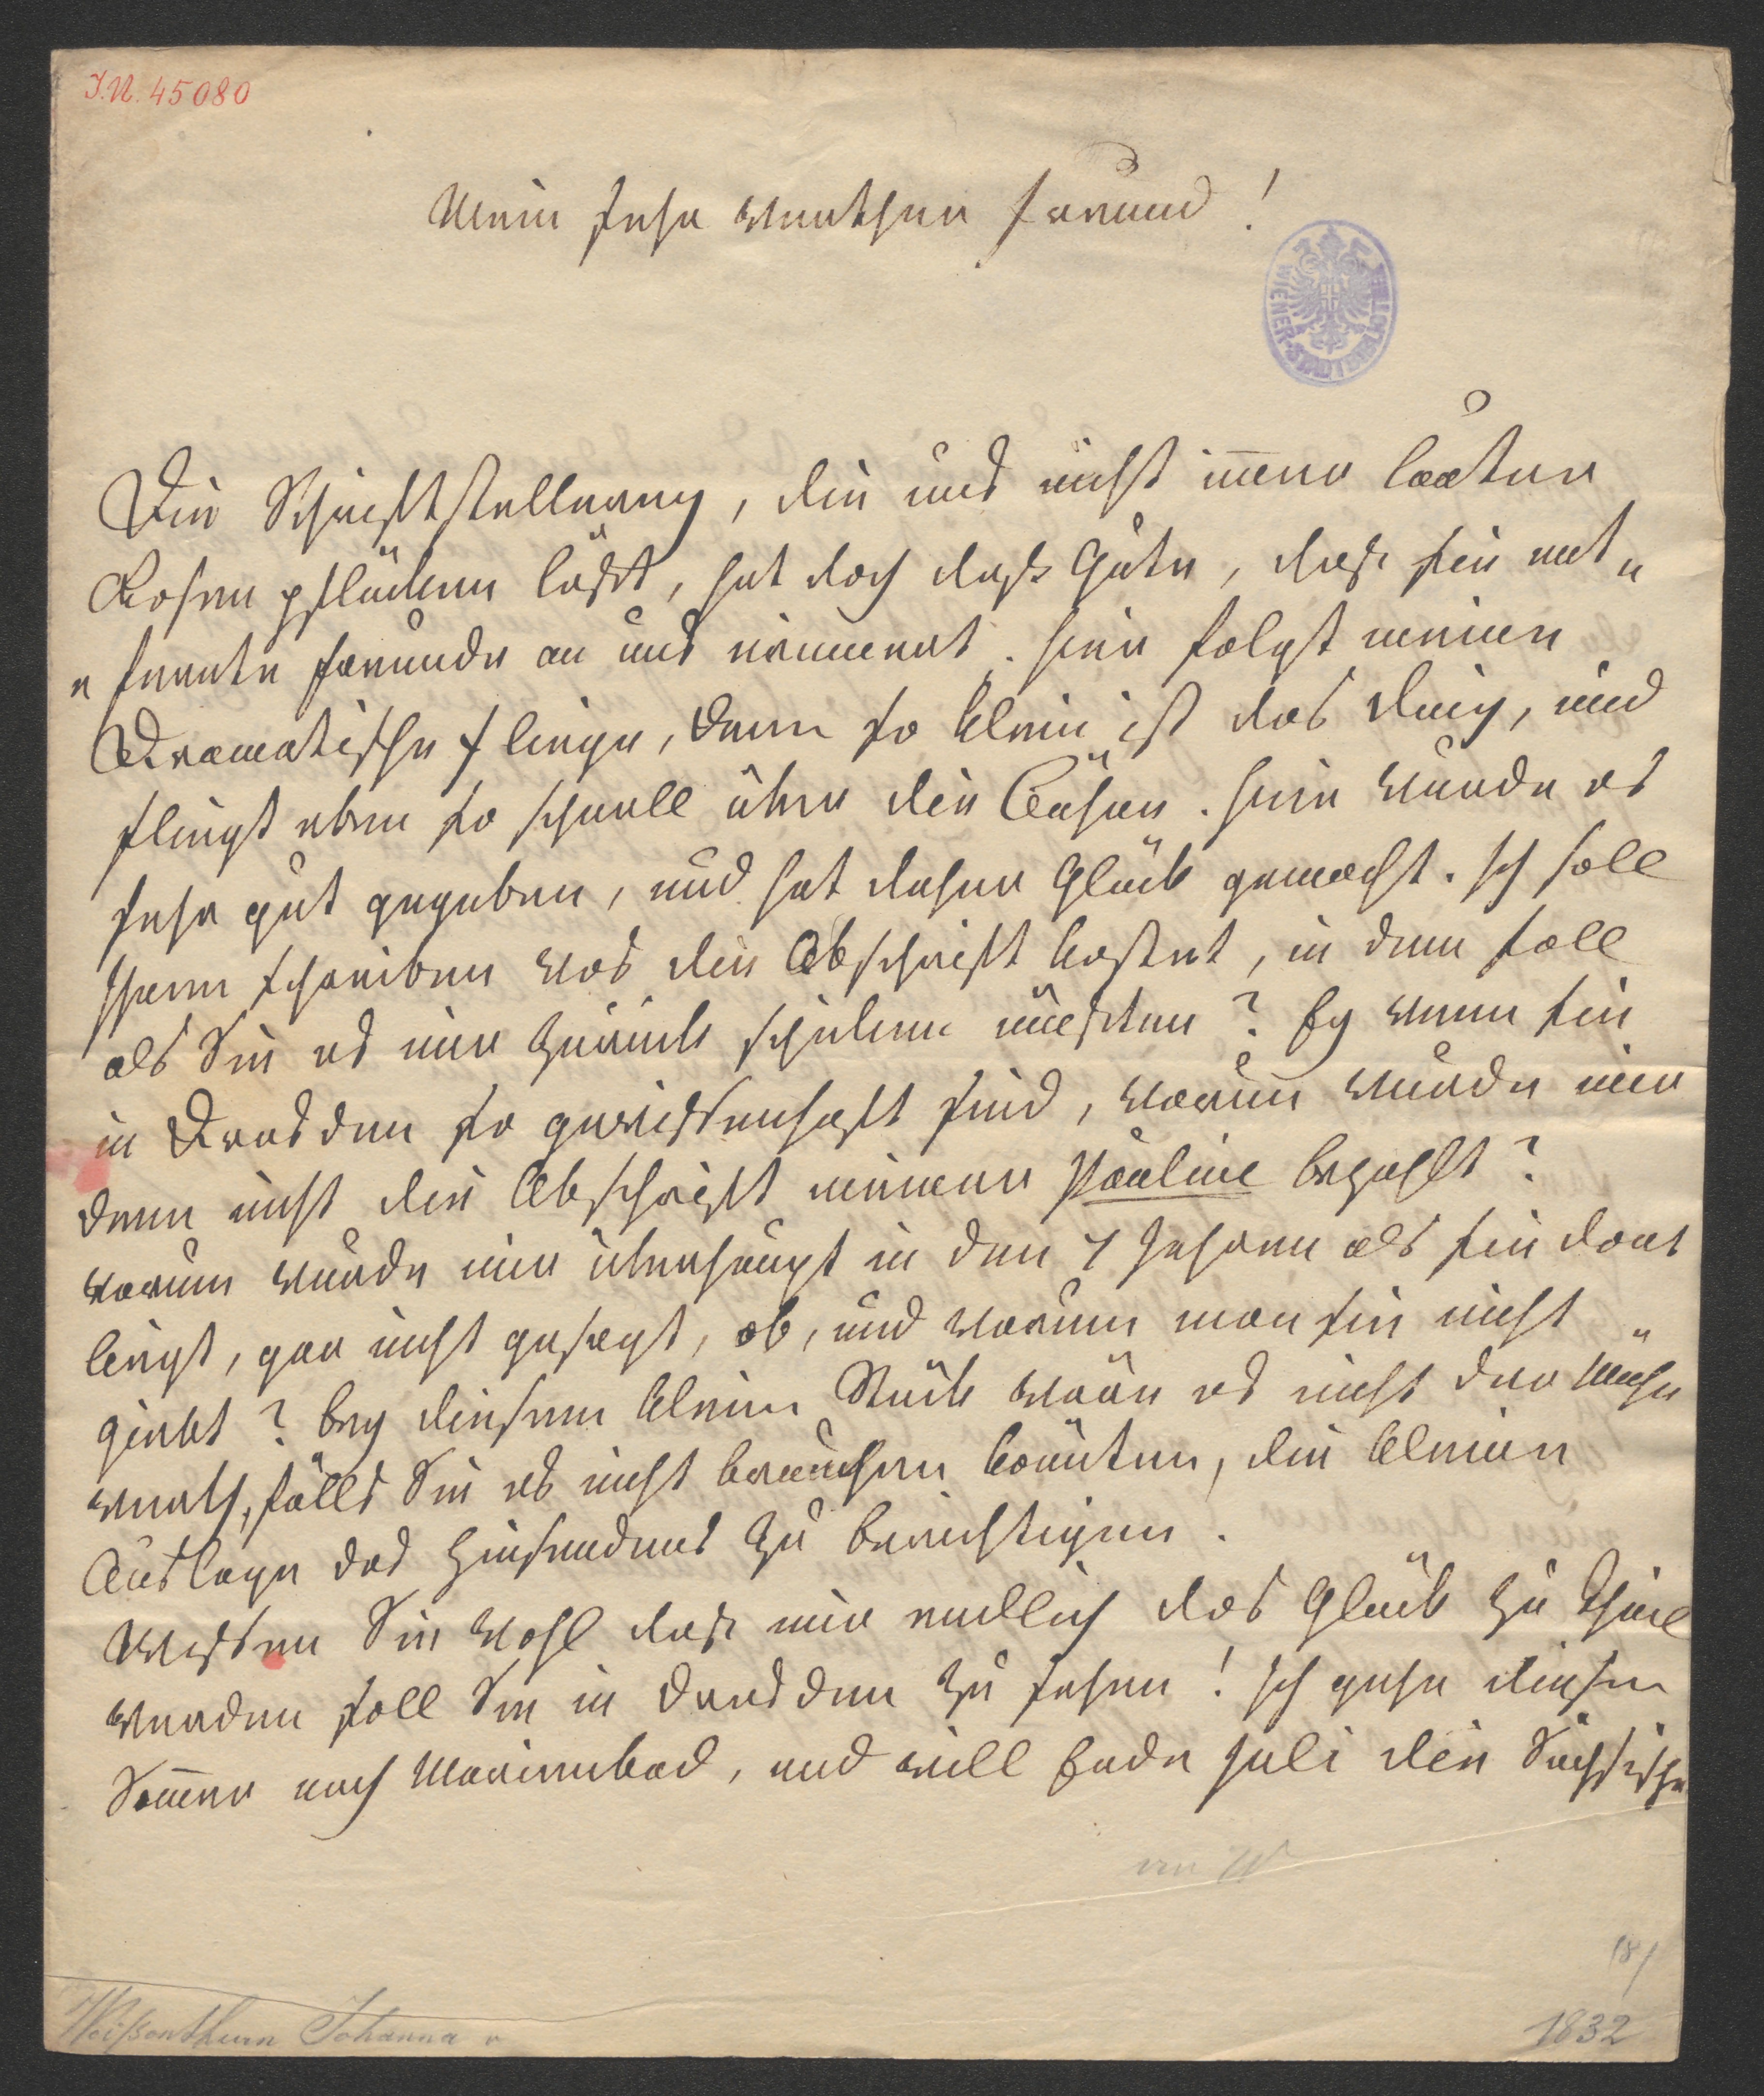 I.N. 45080
Mein sehr werther Freund!
WIENER-STADTBIBLIOTHEK
Die Schriftstellerey, die uns nicht immer lauter
Rosen pflücken läßt, hat doch daß Gute, daß sie ent„
„fernte Freunde an uns erinnert. Hier folgt meine
Dramatische Fliege, denn so klein ist das Ding, und
fliegt eben so schnell über die Bühne. Hier wurde es
sehr gut gegeben, und hat daher Glück gemacht. Ich soll
Ihnen schreiben was die Abschrift kostet, in dem Fall
als Sie es mir zurück schicken müßten? Ey wenn sie
in Dresden so gewissenhaft sind, warum wurde mir
denn nicht die Abschrift meiner Pauline bezahlt?
warum wurde mir überhaupt in den 4 Jahren als sie dort
liegt, gar nicht gesagt, ob, und warum man sie nicht
giebt? bey diesem kleinen Stück wäre es nicht der Mühe
werth, falls Sie es nicht brauchen könnten, die kleine
Auslage des Hinsendens zu berichtigen.
Wissen Sie wohl daß mir endlich das Glück zu Theil
werden soll Sie in Dresden zu sehen! Ich gehe diesen
Sommer nach Marienbad, und will Ende Juli die Sächsische
Weißenthurn Johanna v
1832